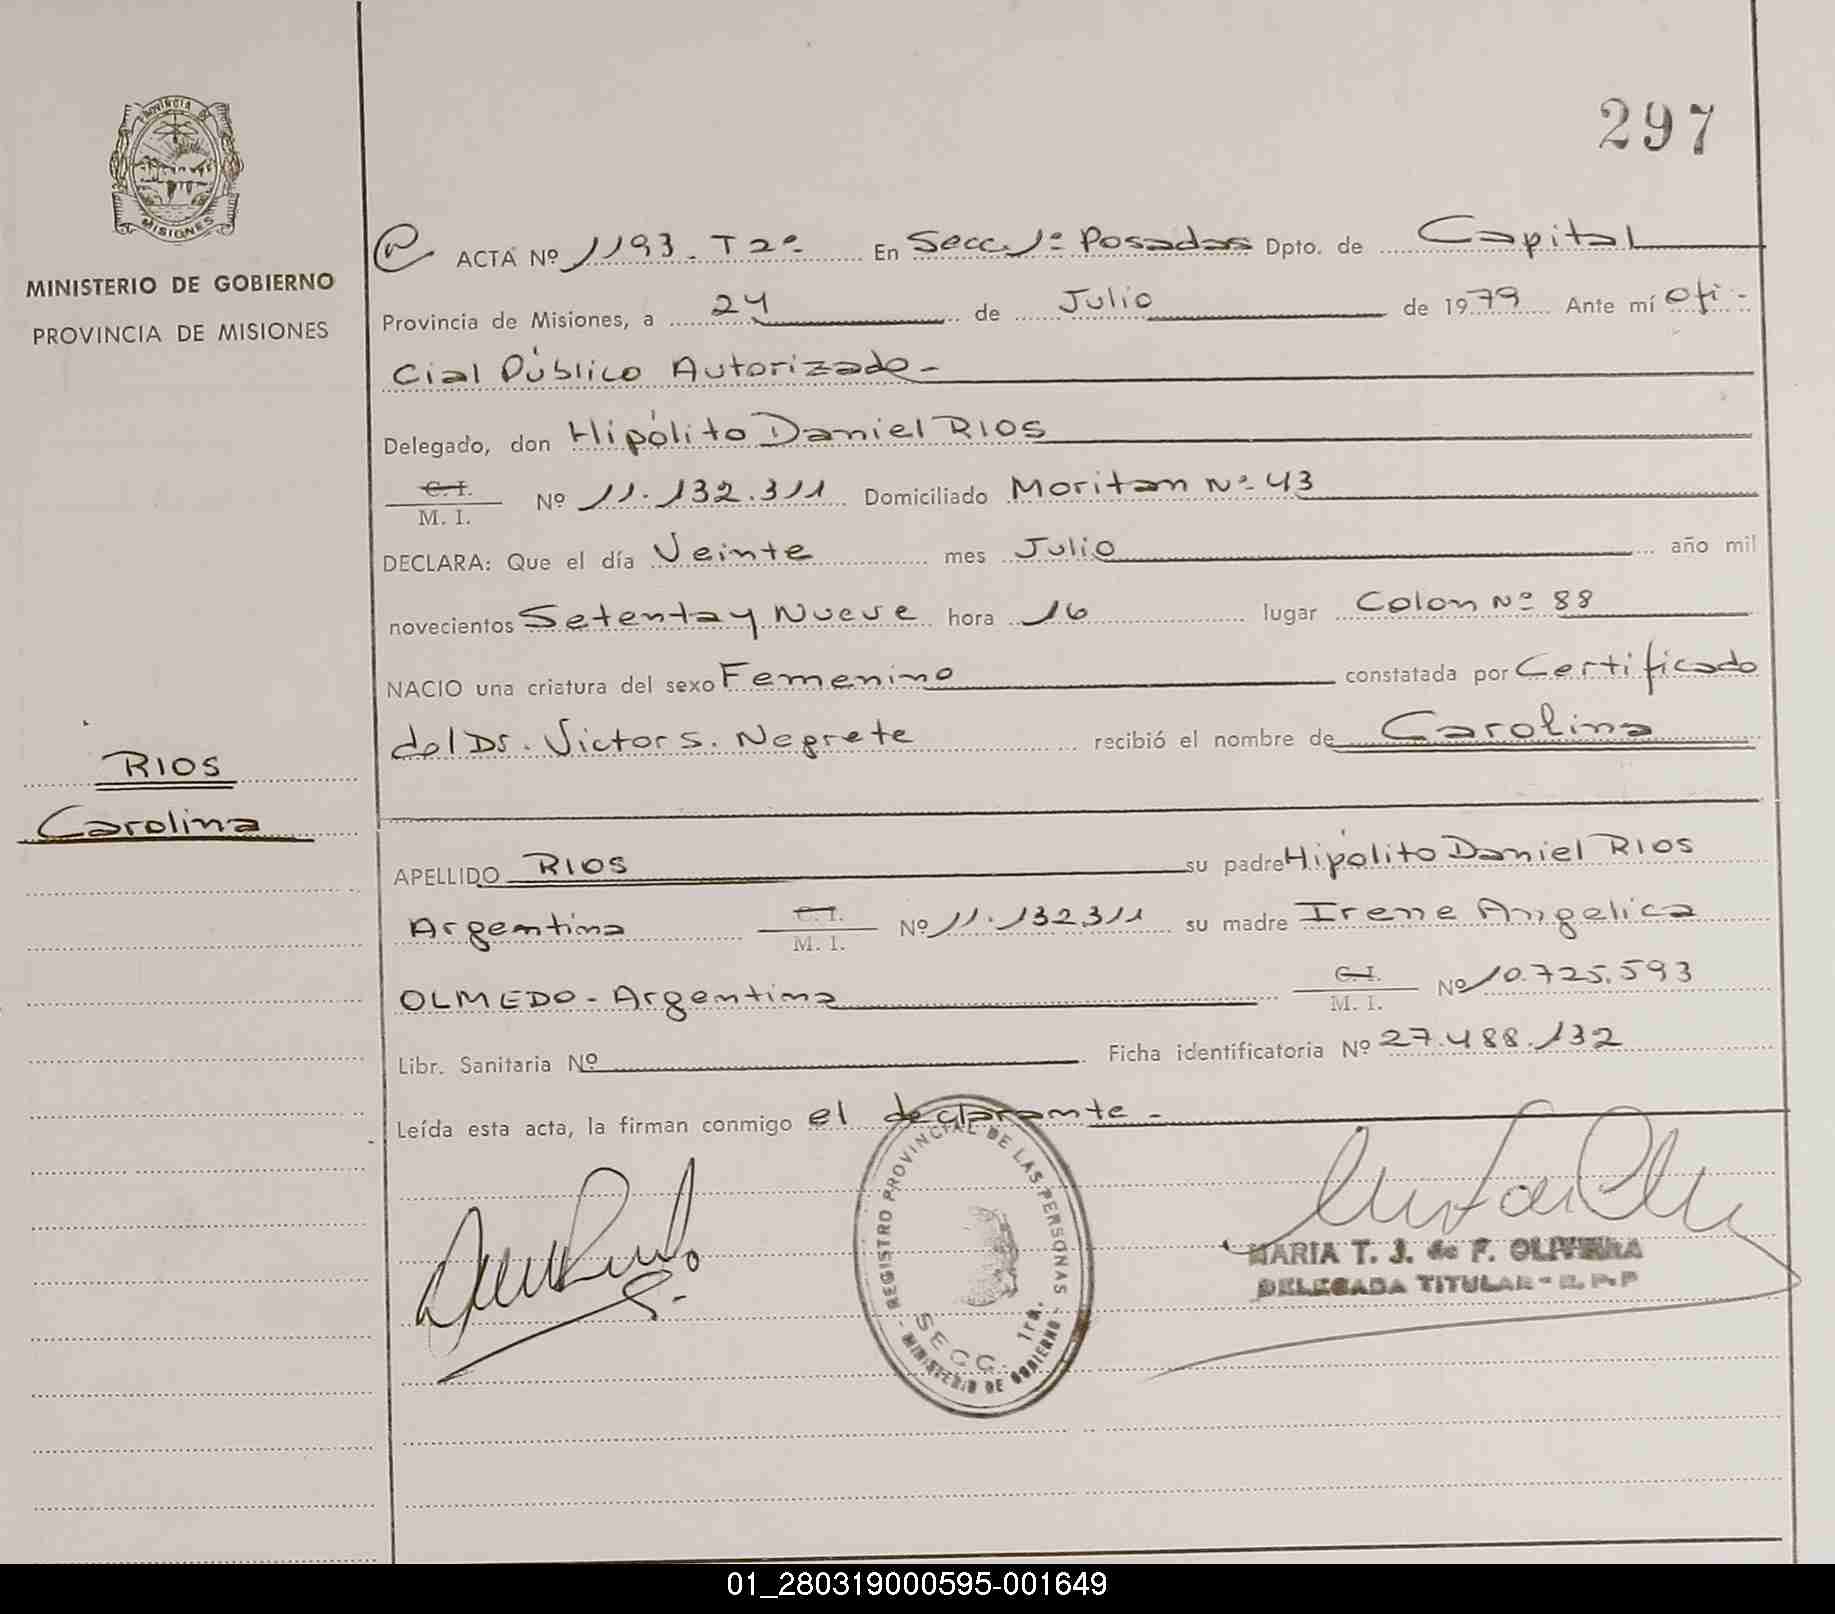 297
PROVINCIA DE
MISIONES
MINISTERIO DE GOBIERNO
PROVINCIA DE MISIONES
RIOS
Carolina
ACTA Nº 1193. T2º En Secc. 1º Posadas Dpto. de Capital
Provincia de Misiones, a 24 de Julio de 1979 Ante mí Ofi-
cial Público Autorizado-
Delegado, don Hipólito Daniel RIOS
C. I.
M. I. Nº 11.132.311 Domiciliado Moritan Nº 43
DECLARA: Que el día Veinte mes Julio año mil
novecientos Setenta y Nueve hora 16 lugar Colon Nº 88
NACIO una criatura del sexo Femenino constatada por Certificado
del Dr. Victor S. Negrete recibió el nombre de Carolina
APELLIDO RIOS su padre Hipólito Daniel RIOS
Argentina C. I. M. I. Nº 11.132311 su madre Irene Angelica
OLMEDO - Argentina C. I. M. I. Nº 10.725.593
Libr. Sanitaria Nº Ficha identificatoria Nº 27.488.132
Leída esta acta, la firman conmigo el declarante -
REGISTRO PROVINCIAL DE LAS PERSONAS
SECC. 1ra.
MINISTERIO DE GOBIERNO
MARIA T. J. de F. OLIVEIRA
DELEGADA TITULAR - R. P. P
01_280319000595-001649